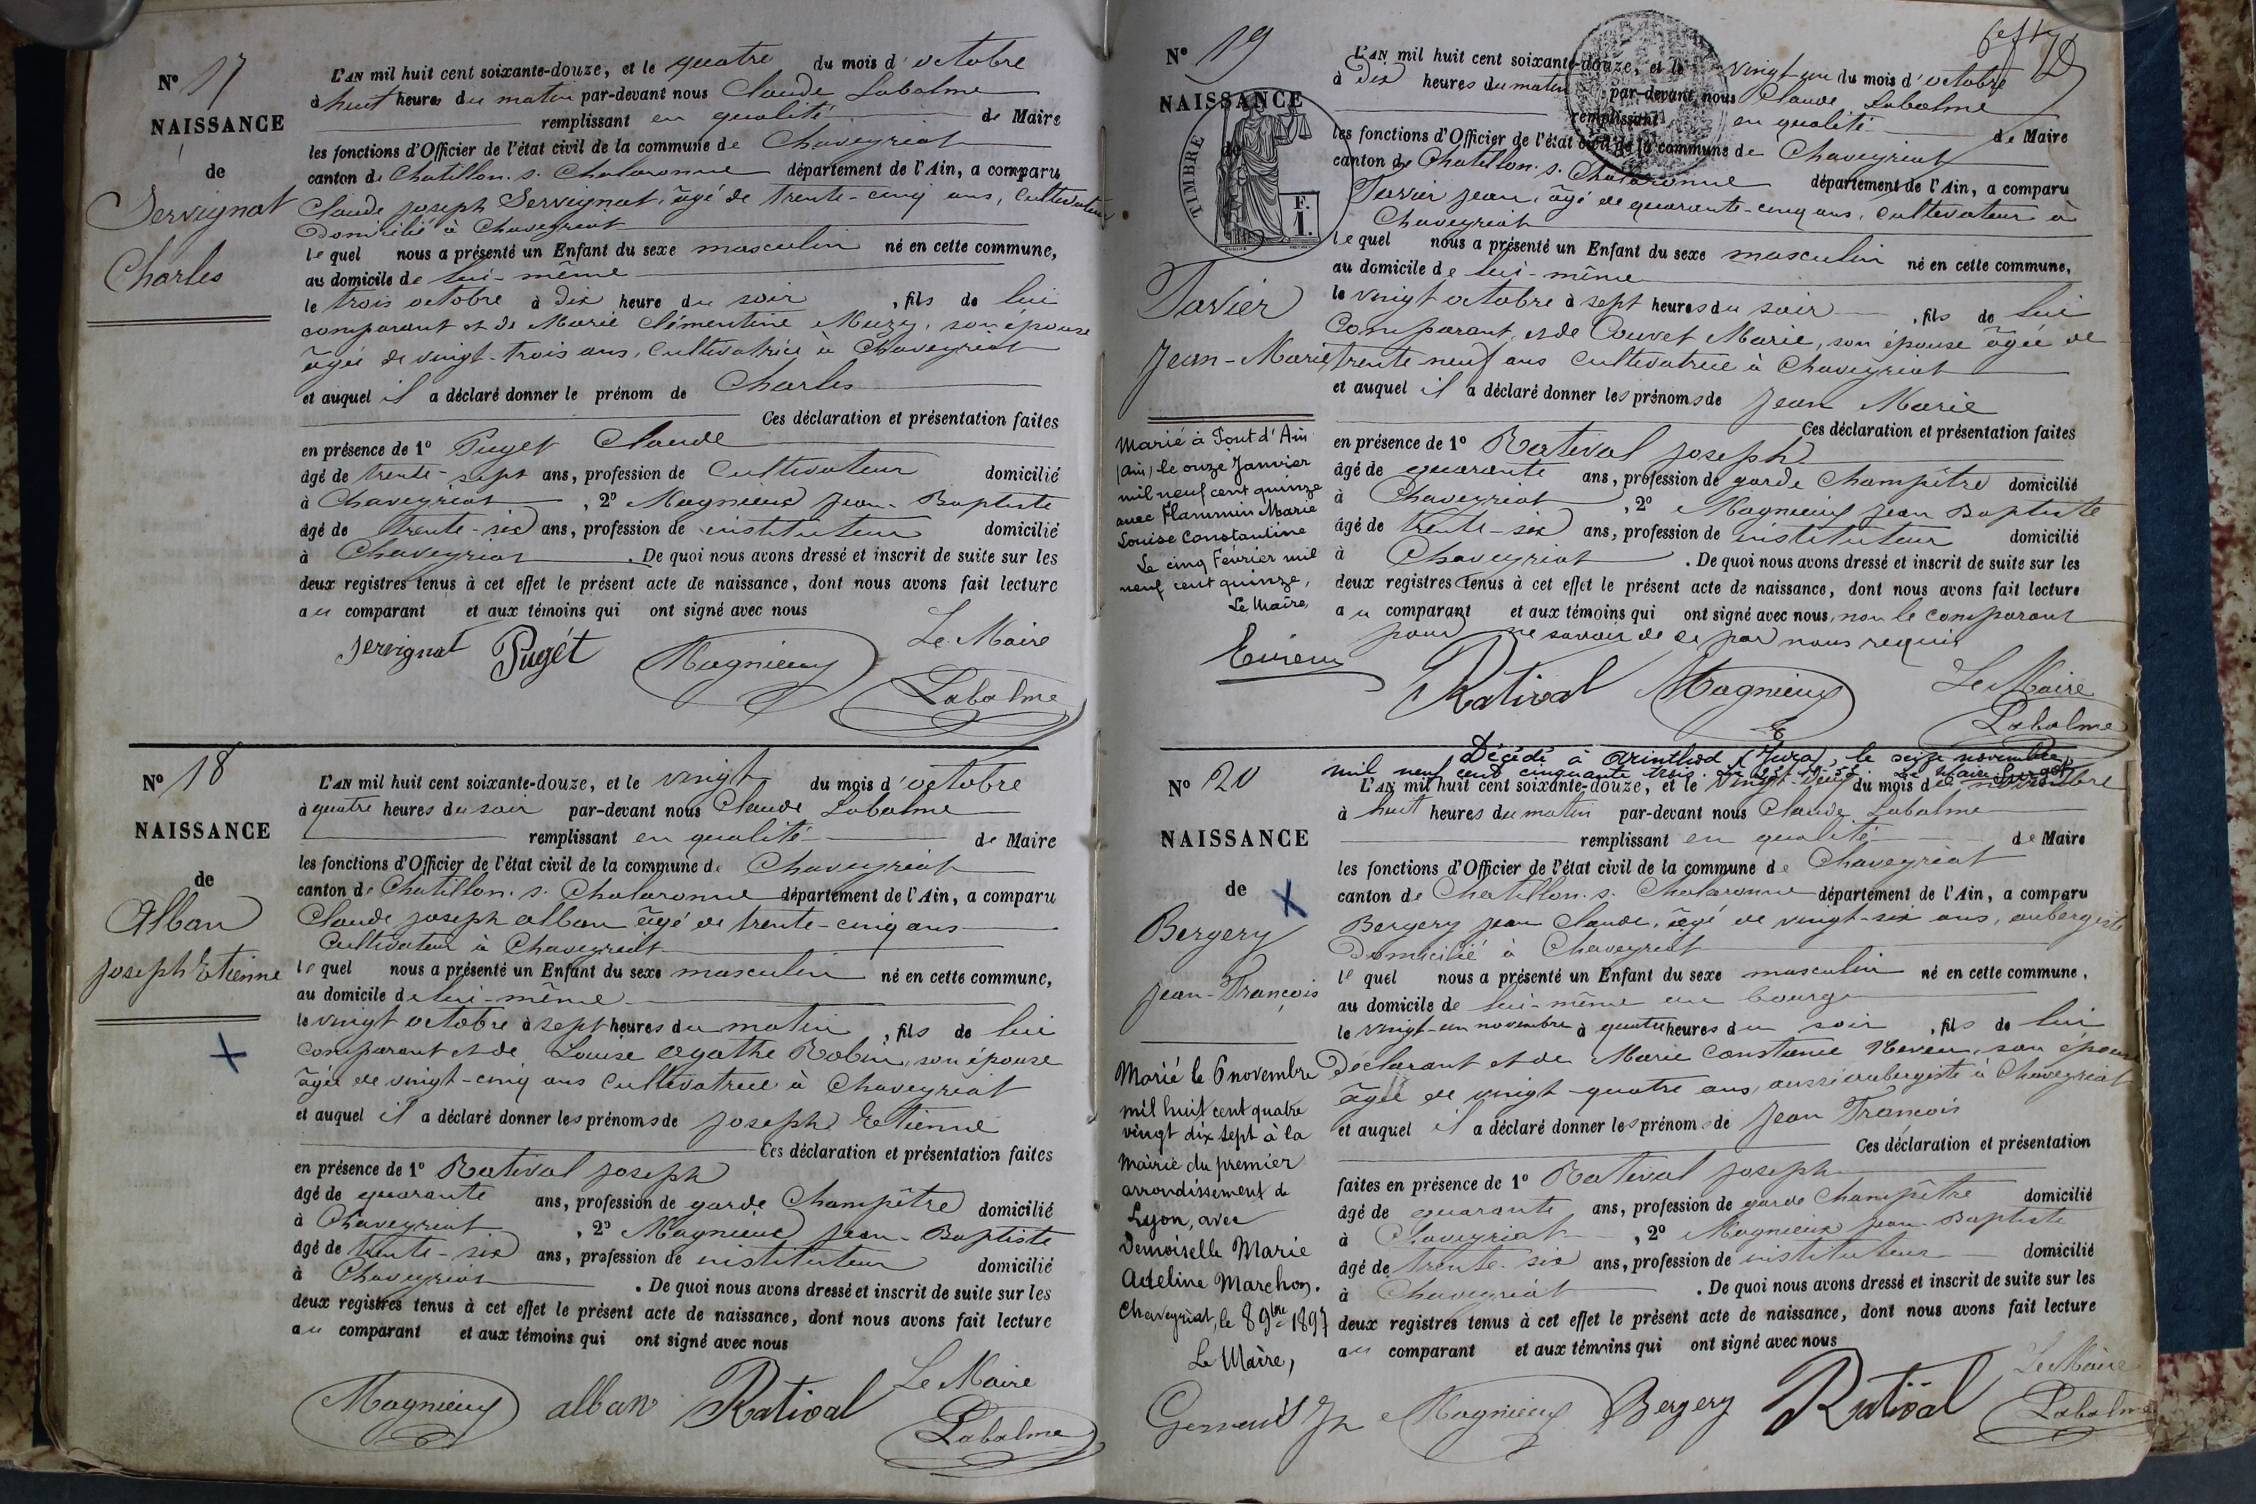 N° 17
NAISSANCE
de
Servignat
Charles
L'AN mil huit cent soixante-douze, et le quatre du mois d'octobre
à huit heures du matin par-devant nous Claude Labalme
remplissant en qualité de Maire
les fonctions d'Officier de l'état civil de la commune de Chaveyriat
canton de Chatillon. s. Chalaronne département de l'Ain, a comparu
Claude joseph Servignat, âgé de trente-cinq ans, cultivateur
Domicilié à Chaveyriat
lequel nous a présenté un Enfant du sexe masculin né en cette commune,
au domicile de lui-même
le trois octobre à dix heure du soir, fils de lui
comparant et de Marie Clémentine Muzy, son épouse
âgée de vingt-trois ans, cultivatrice à Chaveyriat
et auquel il a déclaré donner le prénom de Charles
Ces déclaration et présentation faites
en présence de 1° Puget Claude
âgé de trente-sept ans, profession de cultivateur domicilié
à Chaveyriat, 2° Magnieux Jean-Baptiste
âgé de trente-six ans, profession de instituteur domicilié
à Chaveyriat. De quoi nous avons dressé et inscrit de suite sur les
deux registres tenus à cet effet le présent acte de naissance, dont nous avons fait lecture
au comparant et aux témoins qui ont signé avec nous
Servignat Puget Magnieux Le Maire
Labalme
N° 18
NAISSANCE
de
Alban
joseph Etienne
L'AN mil huit cent soixante-douze, et le vingt du mois d'octobre
à quatre heures du soir par-devant nous Claude Labalme
remplissant en qualité de Maire
les fonctions d'Officier de l'état civil de la commune de Chaveyriat
canton de Chatillon. s. Chalaronne département de l'Ain, a comparu
Claude joseph alban âgé de trente-cinq ans
Cultivateur à Chaveyriat
lequel nous a présenté un Enfant du sexe masculin né en cette commune,
au domicile de lui-même
le vingt octobre à sept heures du matin, fils de lui
comparant et de Louise agathe Robin, son épouse
âgée de vingt-cinq ans cultivatrice à Chaveyriat
et auquel il a déclaré donner les prénoms de joseph Etienne
Ces déclaration et présentation faites
en présence de 1° Ratival joseph
âgé de quarante ans, profession de garde Champêtre domicilié
à Chaveyriat, 2° Magnieux Jean-Baptiste
âgé de trente-six ans, profession de instituteur domicilié
à Chaveyriat. De quoi nous avons dressé et inscrit de suite sur les
deux registres tenus à cet effet le présent acte de naissance, dont nous avons fait lecture
au comparant et aux témoins qui ont signé avec nous
Magnieux alban Ratival Le Maire
Labalme
N° 19
NAISSANCE
de
TIMBRE
F.
1.
Tavier
Jean-Marie
Marié à Pont d'Ain
(Ain) le onze Janvier
mil neuf cent quinze
avec Flammin Marie
Louise Constantine
Le cinq Février mil
neuf cent quinze,
Le Maire,
L'AN mil huit cent soixante-douze, et le vingt-un du mois d'octobre
à dix heures du matin par-devant nous Claude Labalme
remplissant en qualité de Maire
les fonctions d'Officier de l'état civil de la commune de Chaveyriat
canton de Chatillon. s. Chalaronne département de l'Ain, a comparu
Tavier jean, âgé de quarante-cinq ans, cultivateur à
Chaveyriat
lequel nous a présenté un Enfant du sexe masculin né en cette commune,
au domicile de lui-même
le vingt octobre à sept heures du soir, fils de lui
Comparant, et de Couvet Marie, son épouse âgée de
trente neuf ans cultivatrice à Chaveyriat
et auquel il a déclaré donner les prénoms de Jean Marie
Ces déclaration et présentation faites
en présence de 1° Ratival joseph
âgé de quarante ans, profession de garde Champêtre domicilié
à Chaveyriat, 2° Magnieux Jean Baptiste
âgé de trente-six ans, profession de instituteur domicilié
à Chaveyriat. De quoi nous avons dressé et inscrit de suite sur les
deux registres tenus à cet effet le présent acte de naissance, dont nous avons fait lecture
au comparant et aux témoins qui ont signé avec nous, non le comparant
pour ne savoir de ce par nous requis
Ratival Magnieux Le Maire
Labalme
Décédé à Arinthod (Jura) le seize novembre
mil neuf cent cinquante trois. Le Maire
N° 20
NAISSANCE
de
Bergery
Jean-François
Marié le 6 novembre
mil huit cent quatre
vingt dix sept à la
mairie du premier
arrondissement de
Lyon, avec
Demoiselle Marie
Adeline Marchon.
Chaveyriat, le 8 9bre 1897
Le Maire,
L'AN mil huit cent soixante-douze, et le vingt-deux du mois de novembre
à huit heures du matin par-devant nous Claude Labalme
remplissant en qualité de Maire
les fonctions d'Officier de l'état civil de la commune de Chaveyriat
canton de Chatillon. s. Chalaronne département de l'Ain, a comparu
Bergery jean Claude, âgé de vingt-six ans, aubergiste
Domicilié à Chaveyriat
lequel nous a présenté un Enfant du sexe masculin né en cette commune,
au domicile de lui-même au bourg
le vingt-un novembre à quatre heures du soir, fils de lui
Déclarant et de Marie Constance Neveu, son épouse
âgée de vingt-quatre ans, aussi aubergiste à Chaveyriat
et auquel il a déclaré donner les prénoms de Jean François
Ces déclaration et présentation
faites en présence de 1° Ratival joseph
âgé de quarante ans, profession de garde Champêtre domicilié
à Chaveyriat, 2° Magnieux Jean-Baptiste
âgé de trente-six ans, profession de instituteur domicilié
à Chaveyriat. De quoi nous avons dressé et inscrit de suite sur les
deux registres tenus à cet effet le présent acte de naissance, dont nous avons fait lecture
au comparant et aux témoins qui ont signé avec nous
Magnieux Bergery Ratival Le Maire
Labalme